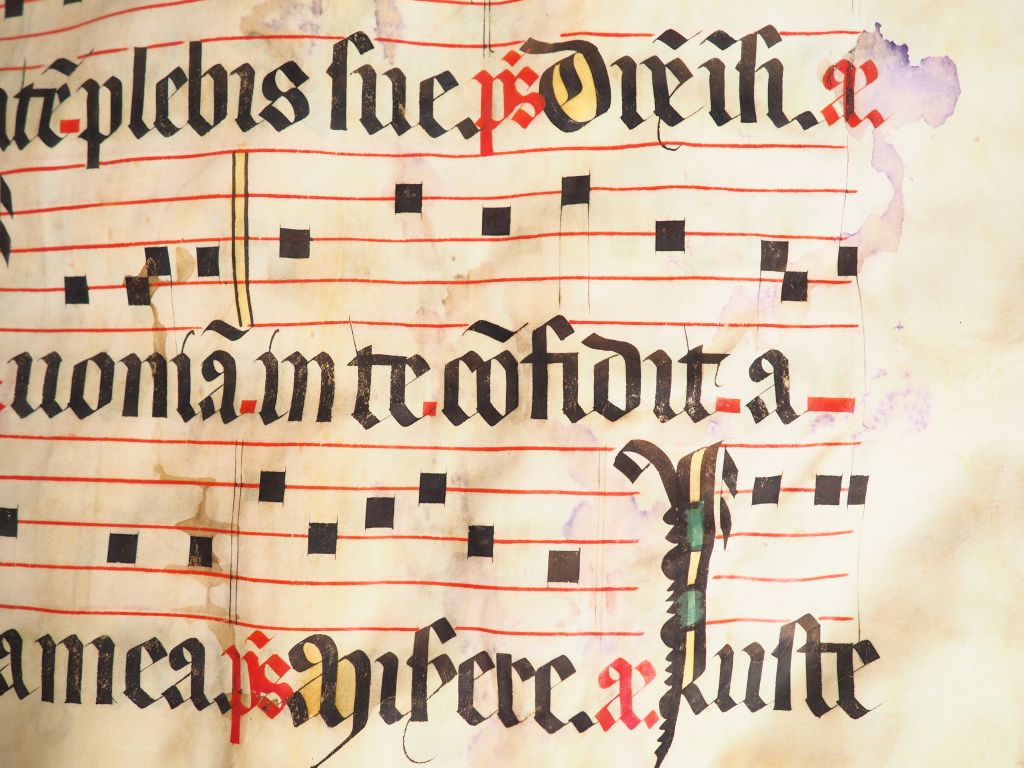 plebis sue. ps Dixit. ae.
uoniā in te cōfidit a
a mea. ps Miserere. ae. Iuste